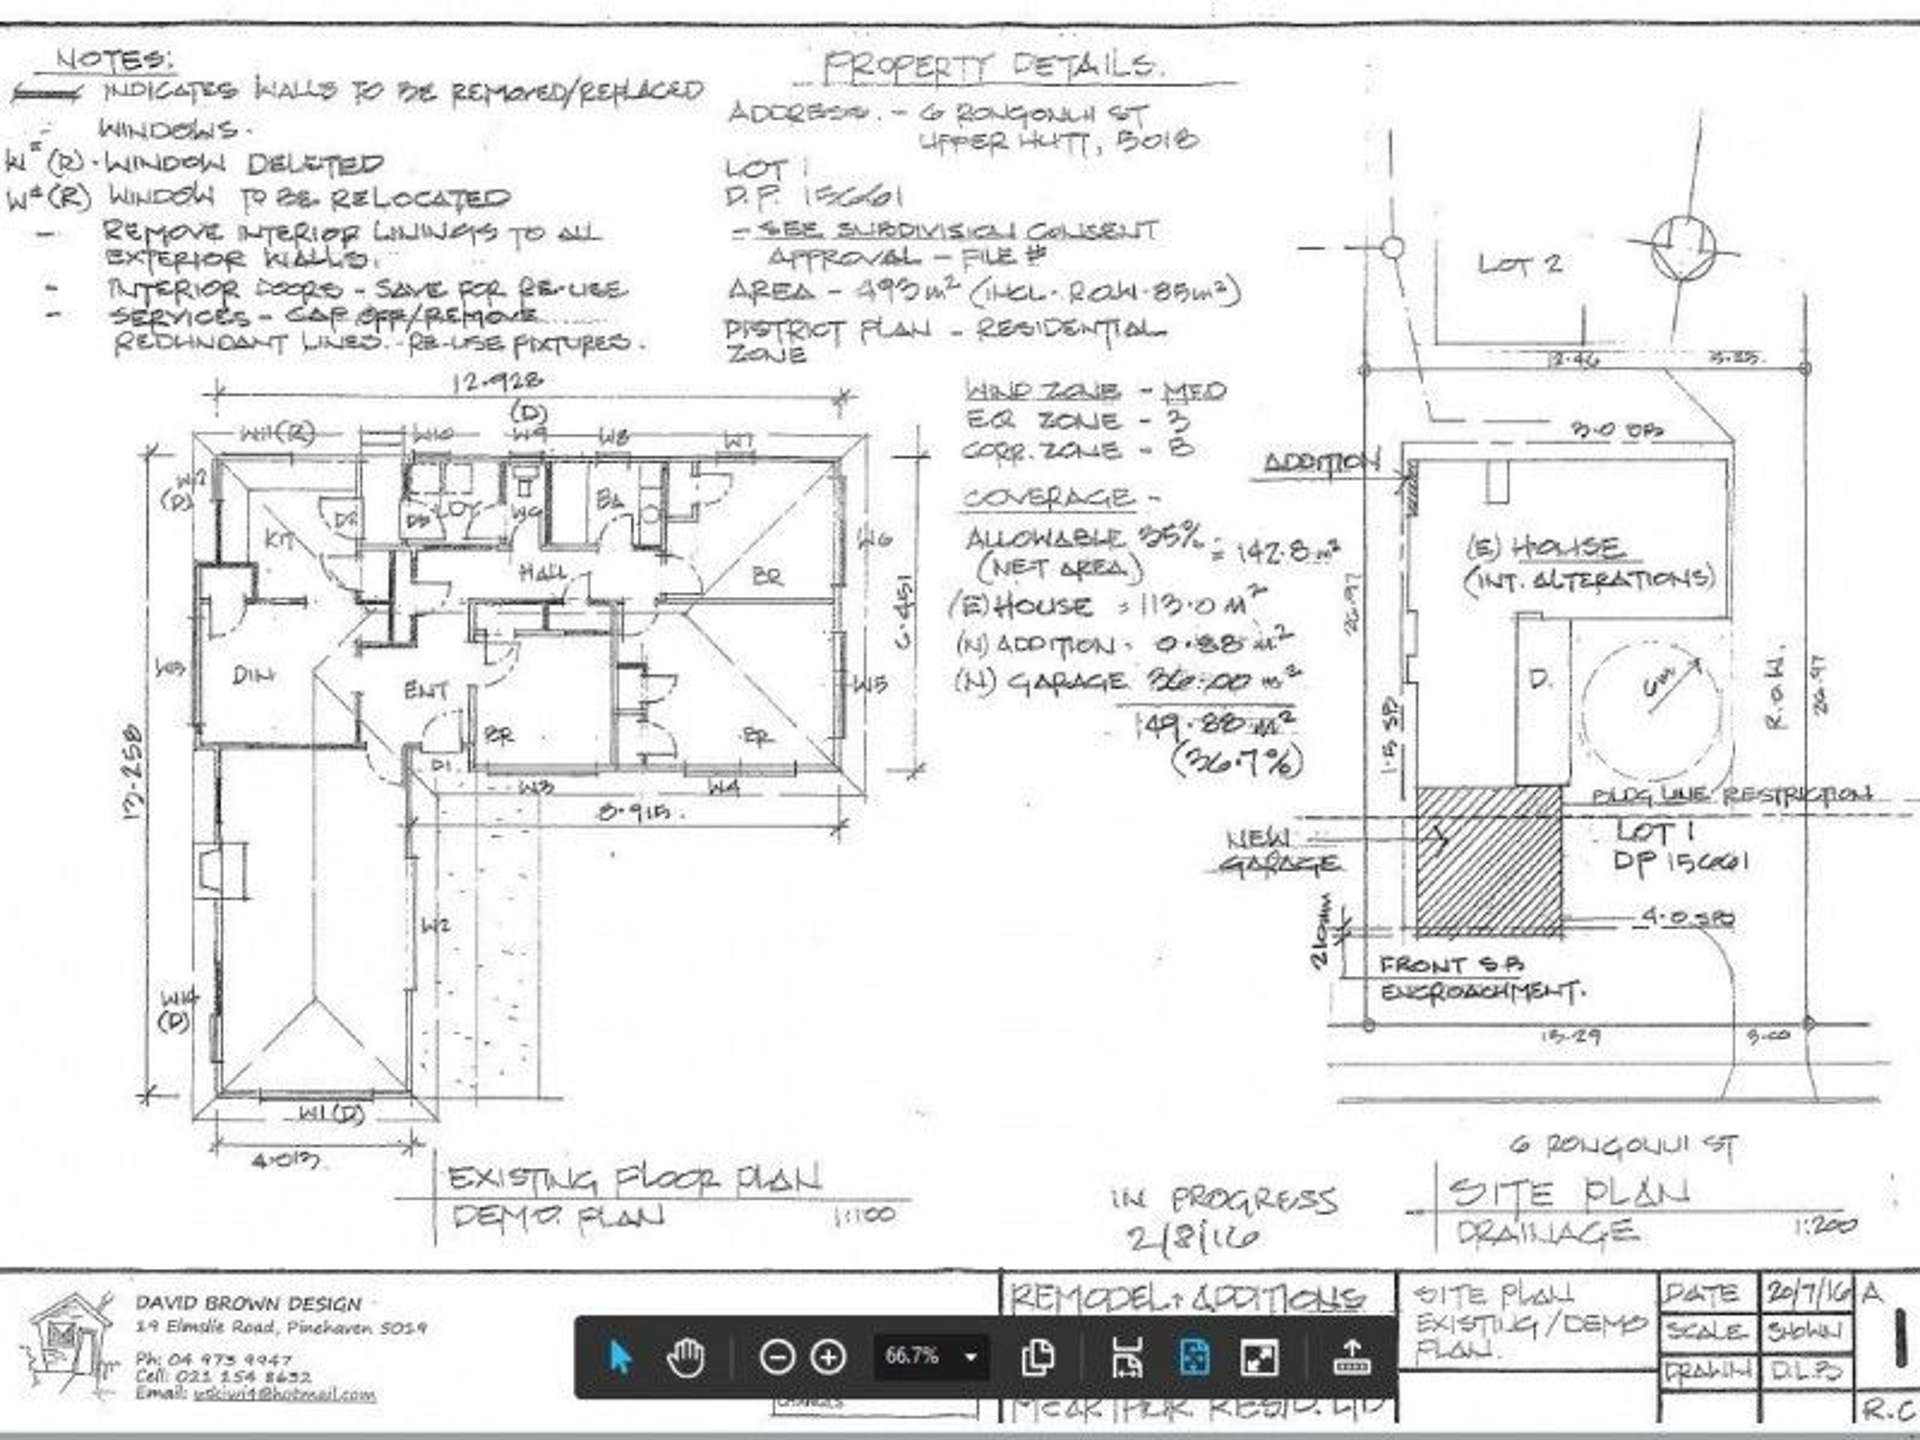 NOTES:
INDICATES WALLS TO BE REMOVED/REPLACED
WINDOWS.
(D) - WINDOW DELETED
W#(R) WINDOW TO BE RELOCATED
- REMOVE INTERIOR LININGS TO ALL
EXTERIOR WALLS.
- INTERIOR DOORS - SAVE FOR RE-USE
- SERVICES - CAP OFF/REMOVE
REDUNDANT LINES. - RE-USE FIXTURES.
PROPERTY DETAILS.
ADDRESS. - 6 RONGONUI ST
UPPER HUTT, 5018
LOT 1
D.P. 15661
- SEE SUBDIVISION CONSENT
APPROVAL - FILE #
AREA - 493m² (INCL. R.O.W. 85m²)
DISTRICT PLAN - RESIDENTIAL
ZONE
WIND ZONE - MED
EQ ZONE - 3
CORR. ZONE - B
COVERAGE -
ALLOWABLE 35% = 142.8m²
(NET AREA)
(E) HOUSE = 113.0 M²
(N) ADDITION - 0.88 m²
(N) GARAGE 36.00 m²
149.88 m²
(36.7%)
12.928
(D)
W11(R)
W10
W9
W8
W7
(D)
KIT
D2
D3
LDY
WC
BA
W6
HALL
BR
6.451
DIN
ENT
BR
BR
W5
13.258
D1
W3
W4
8.915
W2
W14
(D)
W1(D)
4.013
EXISTING FLOOR PLAN
DEMO. PLAN 1:100
LOT 2
12.46
3.0 SB
ADDITION
(E) HOUSE
(INT. ALTERATIONS)
26.97
D.
6m
R.O.W.
26.97
1.5 SB
BLDG LINE RESTRICTION
NEW
GARAGE
LOT 1
DP 15661
4.0 SB
210mm
FRONT S.B
ENCROACHMENT.
15.29
3.00
6 RONGONUI ST
IN PROGRESS
2/8/16
SITE PLAN
DRAINAGE 1:200
DAVID BROWN DESIGN
19 Elmslie Road, Pinehaven 5019
Ph: 04 973 9947
Cell: 021 254 8632
Email: uskiwi4@hotmail.com
REMODEL + ADDITIONS
66.7%
CHANGES
MCARTHUR RESID. LTD
SITE PLAN
EXISTING/DEMO
PLAN.
DATE 20/7/16
SCALE SHOWN
DRAWN D.L.B
A
1
R.C